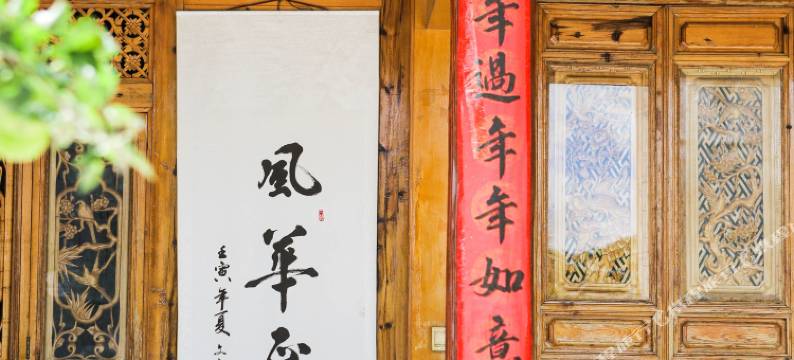 年過年年如意
風華
壬寅年夏